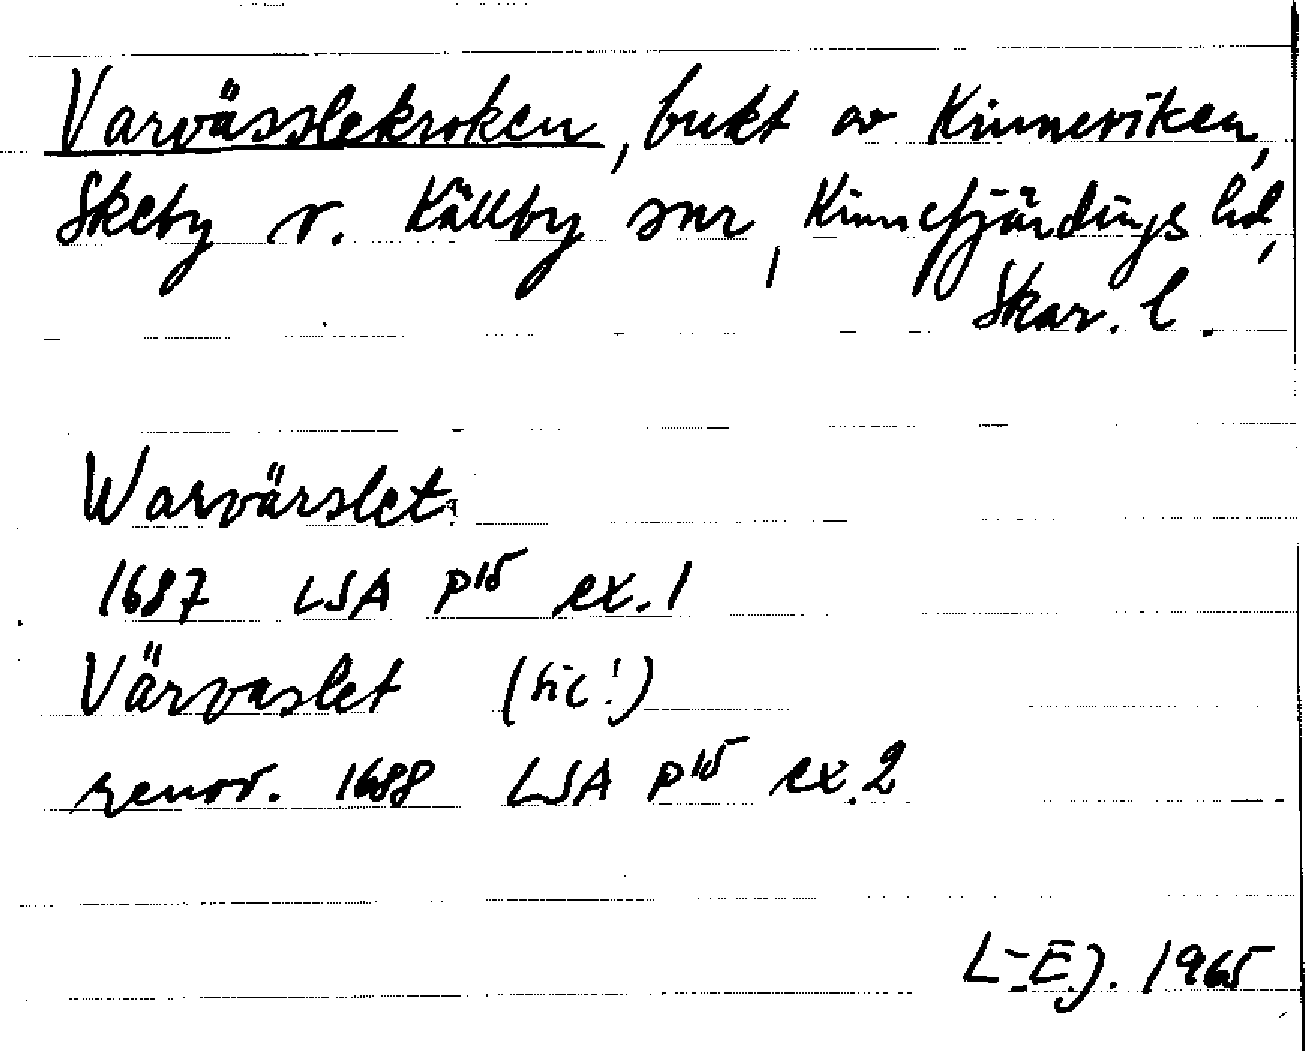 Varvässlekroken, bukt av Kinneviken,
Skeby o. Källby snr, Kinnefjärdings hd,
Skar. l.
Warvärslet
1687 LSA P15 ex. 1
Värvaslet (sic!)
renov. 1688 LSA P15 ex. 2
L-EJ. 1965